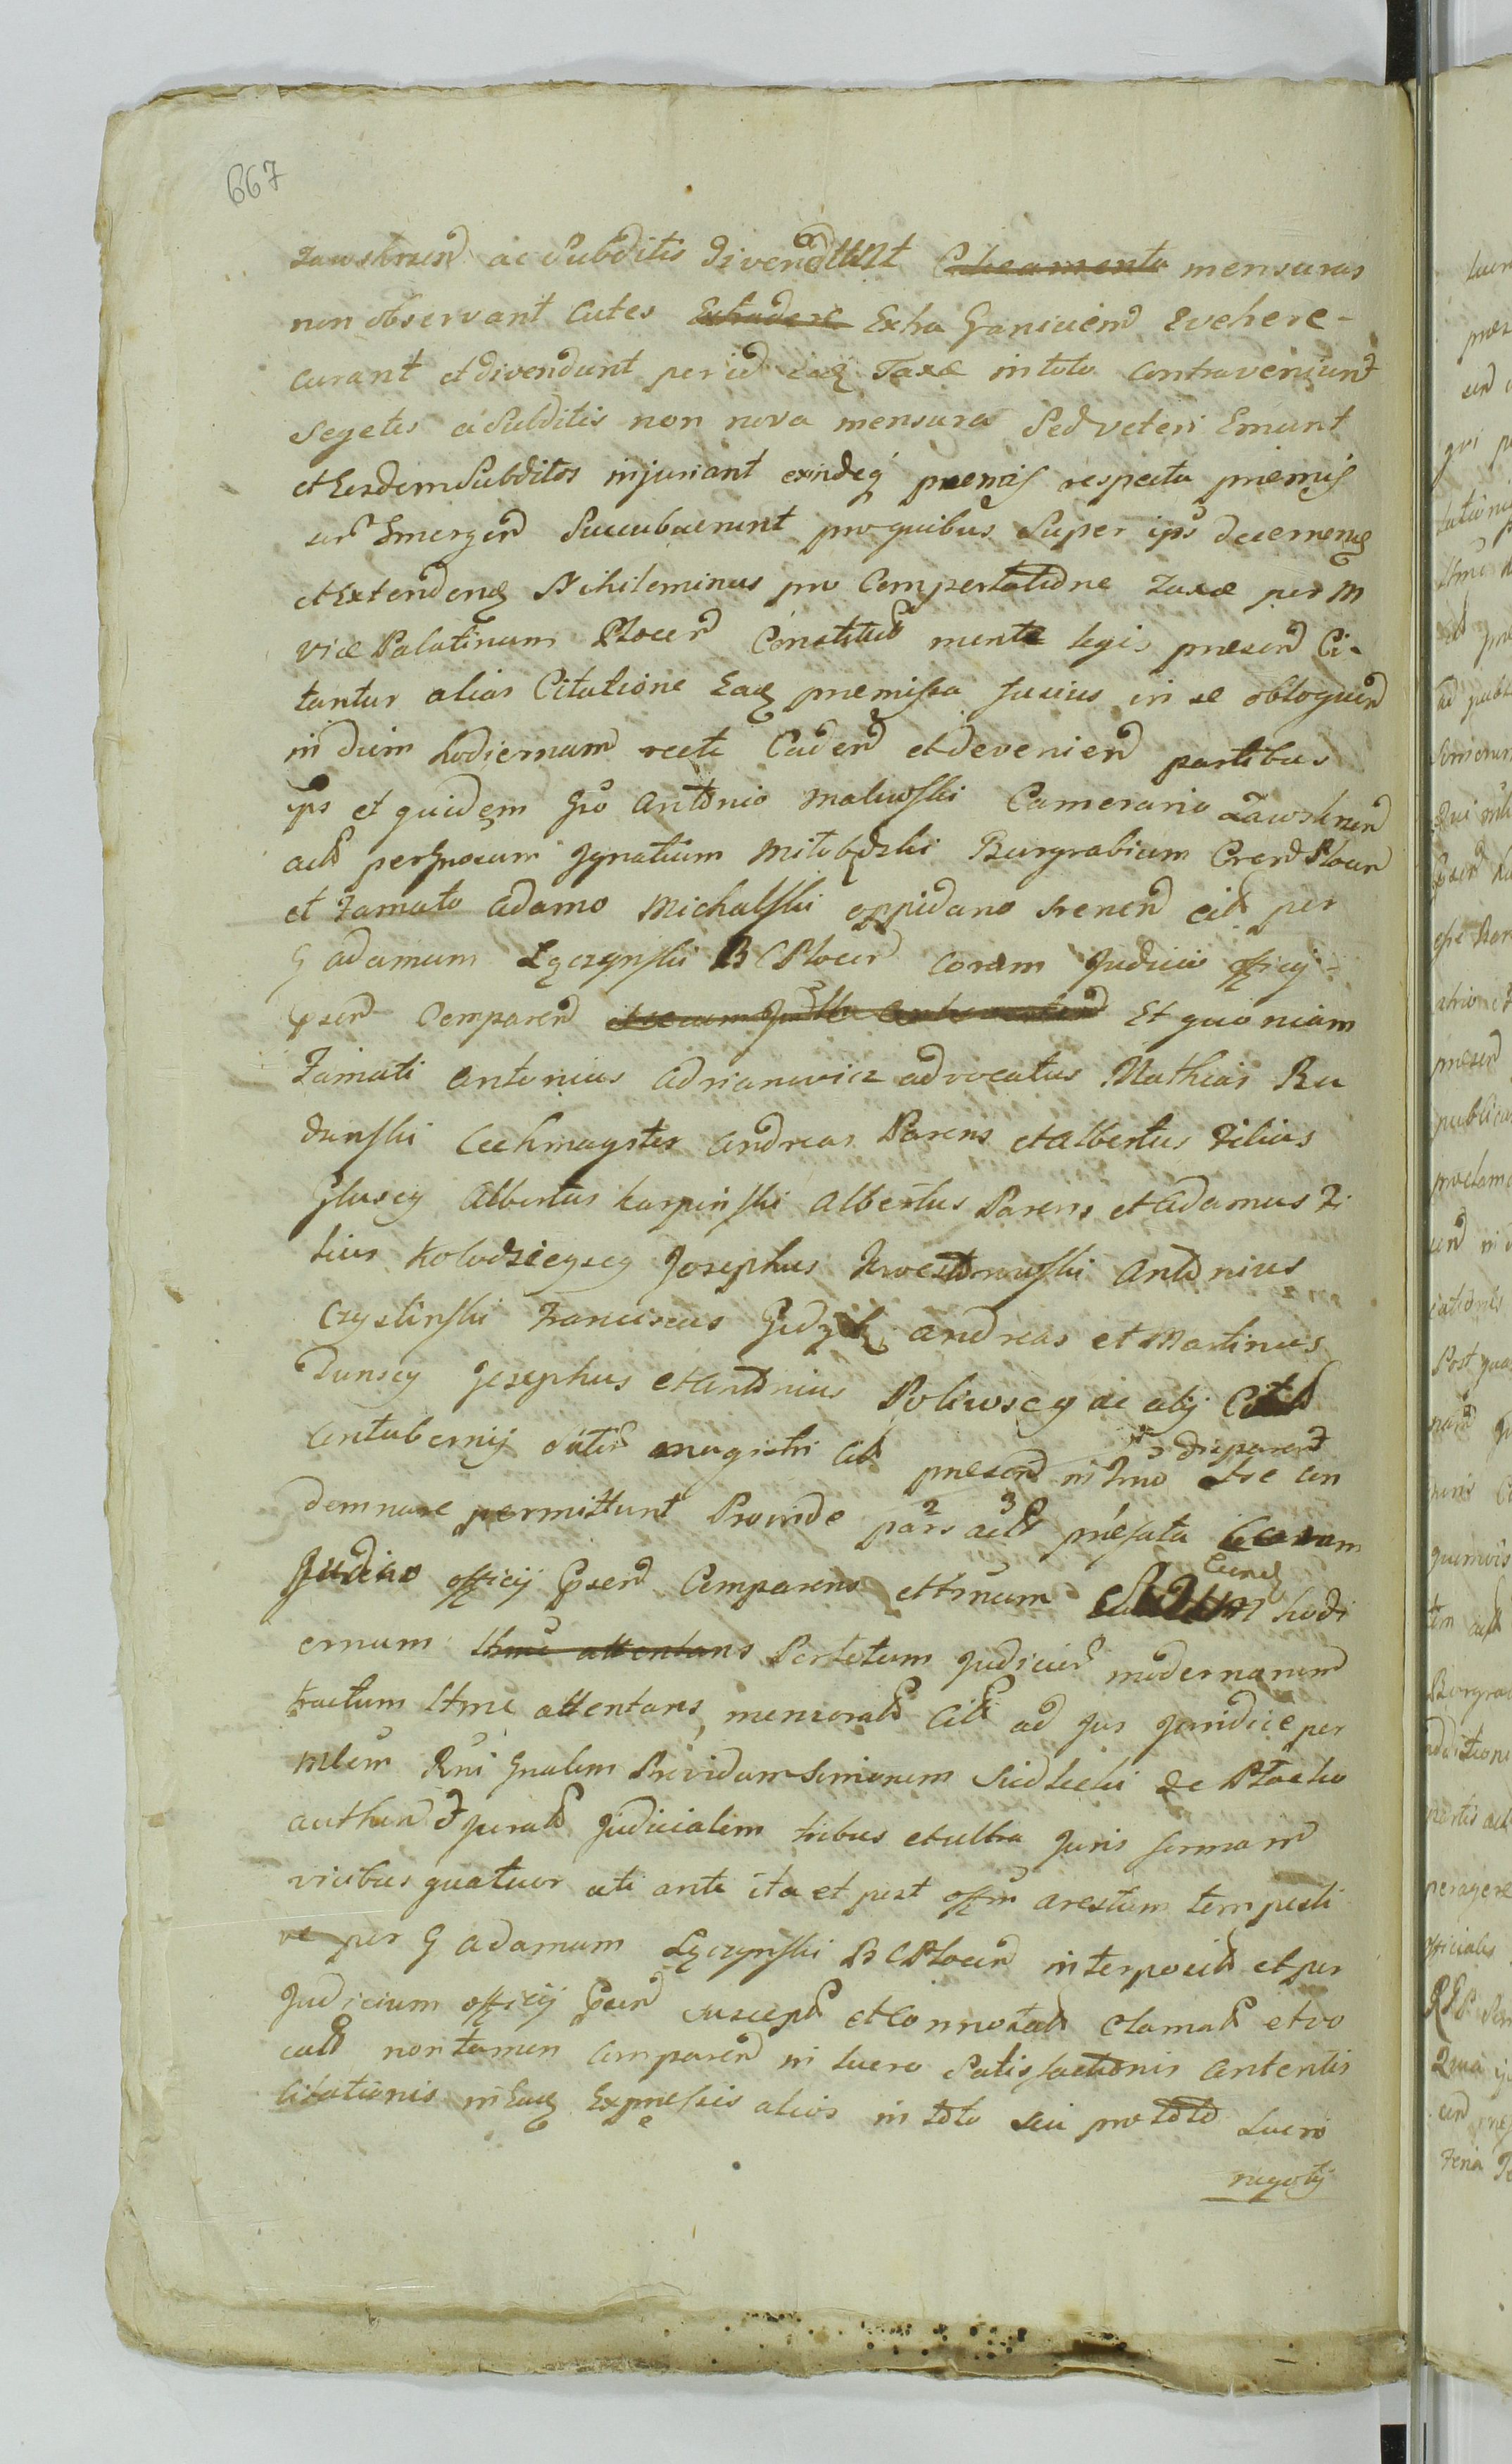 667
Zawskrzen ac Subditis divendunt Coreamenta mensuras
non observant Cutes Extradere Extra Graniciem evehere-
curant et divendunt per id eaq Taxæ in toto Contraveniunt
Segetes a Subditis non nova mensura Sed veteri Emunt
et Eosdem Subditos injuriant exindeq præmis respectu præmis
Emergen Succubuerunt pro quibus Super ips decernens
et Extendens Nihilominus pro Comportatione Taxæ per M
vice Palatinum Plocen Constitut mente legis præsen Ci-
tantur alias Citatione Eaq præmissa fusius in se obloquen
in diem hodiernum recte Caden et devenien partibus
ips et quidem Gso Antonio Maluski Camerario Zawskrzen
actt per Gnosum Ignatium Mitobędzki Burgrabium Cren Plocen
et Famato Adamo Michalski oppidano Srenen citt per
G Adamum Łączynski B C Plocen Coram Judicio officij
præsen Comparen Et quoniam
Famati Antonius Adrianowicz advocatus Mathias Ru
dunski Cechmagster Andreas Parens et Albertus Filius
Glusey Albertus Karpinski Albertus Parens et Adamus Fi
lius Kolodzieyscy Josephus Kwestorowski Antonius
Czystinski Franciscus Andreas et Martinus
Dunscy Josephus et Antonius Poliwscy ac alij Citt
Contubernij magistri Citt præsen in Trno disparent
se con
demnare permittunt Proinde pars 2 actt 3 præfata Coram
Judicio officij præsen Comparens et Trnum Eund hodi
ernum Ltme attentans Per totum Judicior modernorum
tractum Ltme attentans, memoratt Citt ad Jus Juridice per
mlem Rni Gnalem Providum Simonem Siedlecki de Płocko
authen Juratt Judicialem tribus et ultra Juris formam
vicibus quatuor uti ante ita et post offm arestum tempesti
ve per G Adamum Łączynski B C Plocen interpositt et per
Judicium officij præsen suscept et Connotatt Clamatt et vo
catt non tamen Comparen in lucro Satisfactionis Contentis
Citationis in Eaq Expressis alias in toto seu pro toto Lucro
negotij